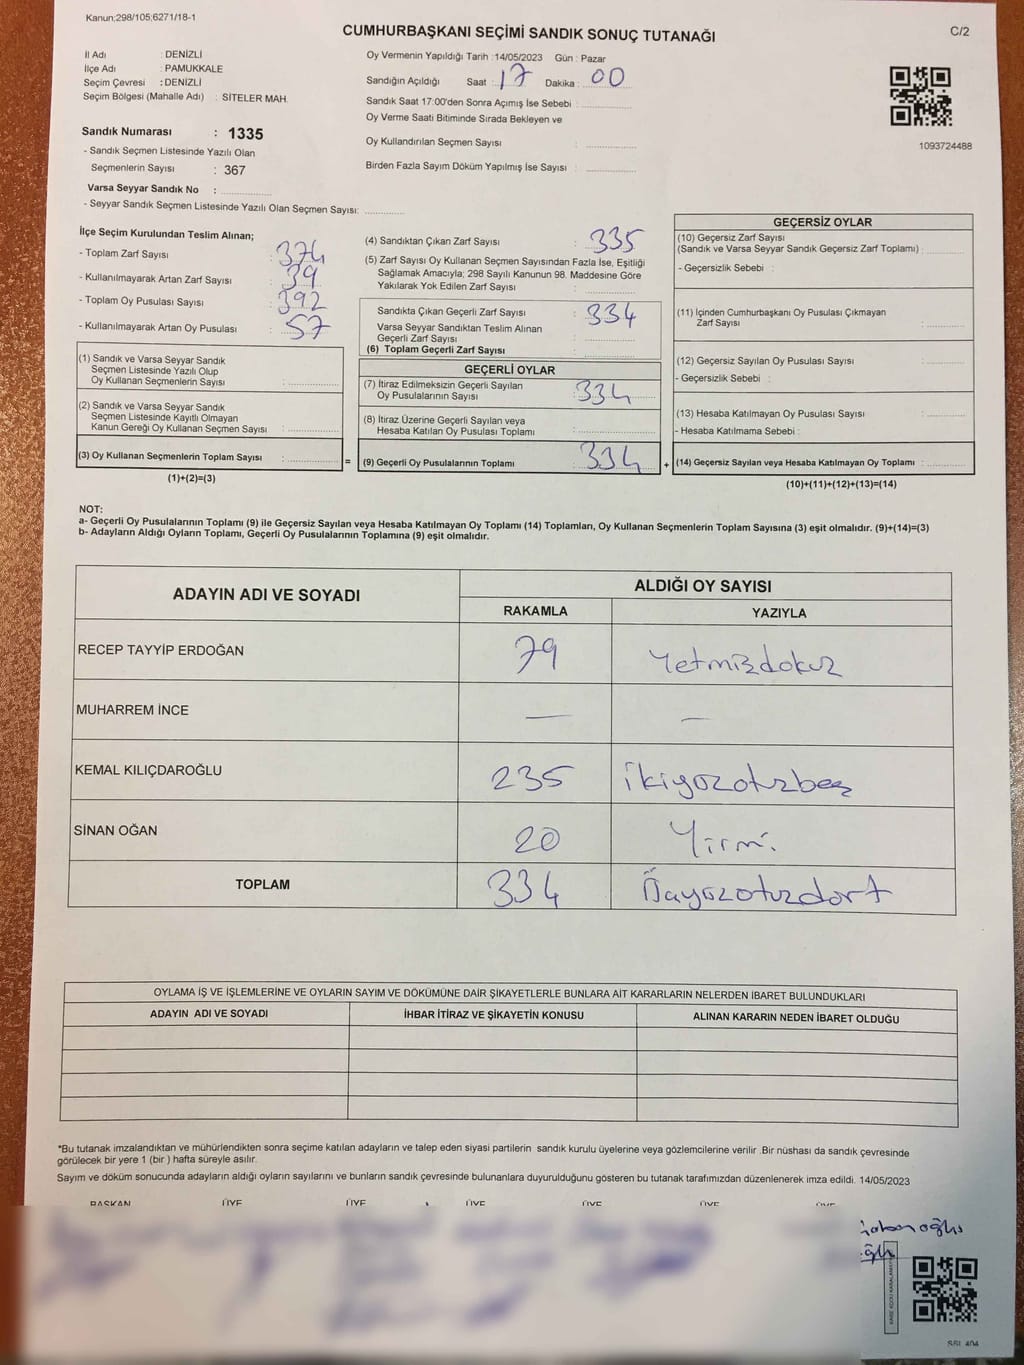 Kanun;298/105;6271/18-1
CUMHURBAŞKANI SEÇİMİ SANDIK SONUÇ TUTANAĞI
C/2
İl Adı : DENİZLİ
İlçe Adı : PAMUKKALE
Seçim Çevresi : DENİZLİ
Seçim Bölgesi (Mahalle Adı) : SİTELER MAH.
Sandık Numarası : 1335
- Sandık Seçmen Listesinde Yazılı Olan
Seçmenlerin Sayısı : 367
Varsa Seyyar Sandık No :
- Seyyar Sandık Seçmen Listesinde Yazılı Olan Seçmen Sayısı:
Oy Vermenin Yapıldığı Tarih :14/05/2023 Gün : Pazar
Sandığın Açıldığı Saat : 17 Dakika : 00
Sandık Saat 17:00'den Sonra Açımış İse Sebebi :
Oy Verme Saati Bitiminde Sırada Bekleyen ve
Oy Kullandırılan Seçmen Sayısı :
Birden Fazla Sayım Döküm Yapılmış İse Sayısı :
1093724488
İlçe Seçim Kurulundan Teslim Alınan;
- Toplam Zarf Sayısı : 374
- Kullanılmayarak Artan Zarf Sayısı : 39
- Toplam Oy Pusulası Sayısı : 392
- Kullanılmayarak Artan Oy Pusulası : 57
(1) Sandık ve Varsa Seyyar Sandık
Seçmen Listesinde Yazılı Olup
Oy Kullanan Seçmenlerin Sayısı :
(2) Sandık ve Varsa Seyyar Sandık
Seçmen Listesinde Kayıtlı Olmayan
Kanun Gereği Oy Kullanan Seçmen Sayısı :
(3) Oy Kullanan Seçmenlerin Toplam Sayısı : =
(1)+(2)=(3)
(4) Sandıktan Çıkan Zarf Sayısı : 335
(5) Zarf Sayısı Oy Kullanan Seçmen Sayısından Fazla İse, Eşitliği
Sağlamak Amacıyla; 298 Sayılı Kanunun 98. Maddesine Göre
Yakılarak Yok Edilen Zarf Sayısı :
Sandıkta Çıkan Geçerli Zarf Sayısı : 334
Varsa Seyyar Sandıktan Teslim Alınan
Geçerli Zarf Sayısı :
(6) Toplam Geçerli Zarf Sayısı :
GEÇERLİ OYLAR
(7) İtiraz Edilmeksizin Geçerli Sayılan
Oy Pusulalarının Sayısı : 334
(8) İtiraz Üzerine Geçerli Sayılan veya
Hesaba Katılan Oy Pusulası Toplamı :
(9) Geçerli Oy Pusulalarının Toplamı : 334 +
GEÇERSİZ OYLAR
(10) Geçersiz Zarf Sayısı
(Sandık ve Varsa Seyyar Sandık Geçersiz Zarf Toplamı) :
- Geçersizlik Sebebi :
(11) İçinden Cumhurbaşkanı Oy Pusulası Çıkmayan
Zarf Sayısı :
(12) Geçersiz Sayılan Oy Pusulası Sayısı :
- Geçersizlik Sebebi :
(13) Hesaba Katılmayan Oy Pusulası Sayısı :
- Hesaba Katılmama Sebebi :
(14) Geçersiz Sayılan veya Hesaba Katılmayan Oy Toplamı :
(10)+(11)+(12)+(13)=(14)
NOT:
a- Geçerli Oy Pusulalarının Toplamı (9) ile Geçersiz Sayılan veya Hesaba Katılmayan Oy Toplamı (14) Toplamları, Oy Kullanan Seçmenlerin Toplam Sayısına (3) eşit olmalıdır. (9)+(14)=(3)
b- Adayların Aldığı Oyların Toplamı, Geçerli Oy Pusulalarının Toplamına (9) eşit olmalıdır.
ADAYIN ADI VE SOYADI ALDIĞI OY SAYISI
RAKAMLA YAZIYLA
RECEP TAYYİP ERDOĞAN 79 Yetmizdokuz
MUHARREM İNCE — —
KEMAL KILIÇDAROĞLU 235 ikiyozotuzbeş
SİNAN OĞAN 20 Yirmi.
TOPLAM 334
OYLAMA İŞ VE İŞLEMLERİNE VE OYLARIN SAYIM VE DÖKÜMÜNE DAİR ŞİKAYETLERLE BUNLARA AİT KARARLARIN NELERDEN İBARET BULUNDUKLARI
ADAYIN ADI VE SOYADI İHBAR İTİRAZ VE ŞİKAYETİN KONUSU ALINAN KARARIN NEDEN İBARET OLDUĞU
*Bu tutanak imzalandıktan ve mühürlendikten sonra seçime katılan adayların ve talep eden siyasi partilerin sandık kurulu üyelerine veya gözlemcilerine verilir .Bir nüshası da sandık çevresinde
görülecek bir yere 1 (bir ) hafta süreyle asılır.
Sayım ve döküm sonucunda adayların aldığı oyların sayılarını ve bunların sandık çevresinde bulunanlara duyurulduğunu gösteren bu tutanak tarafımızdan düzenlenerek imza edildi. 14/05/2023
BAŞKAN ÜYE ÜYE ÜYE ÜYE ÜYE ÜYE